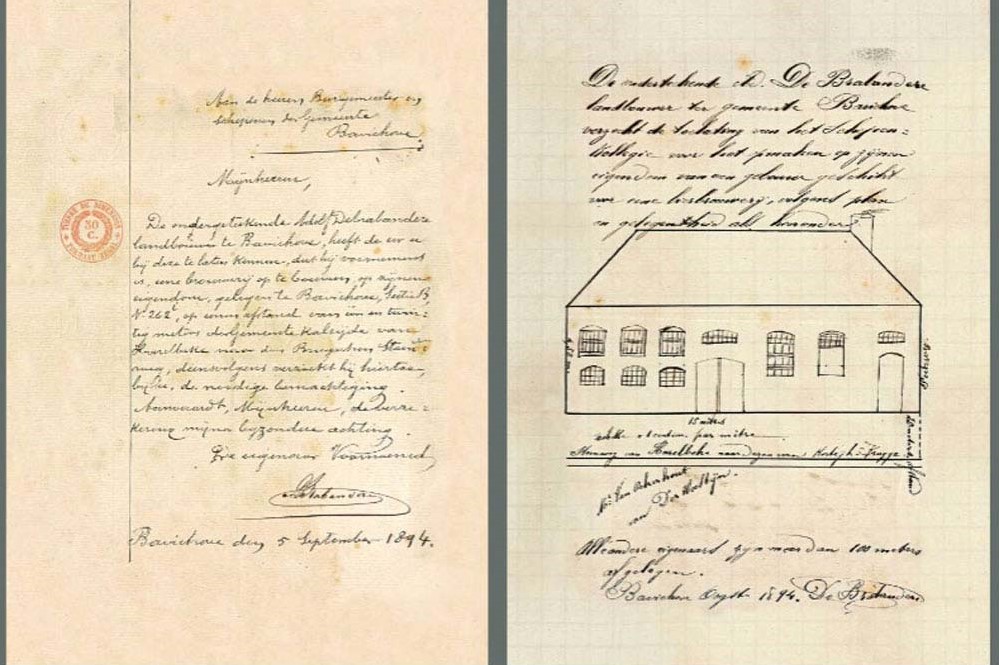 Aan de heeren Burgemeester en
Schepenen der Gemeente
Bavichove
Mijnheeren,
TIMBRE DE DIMENSION
30
C.
De ondergeteekende Adolf Debrabandere
landbouwer te Bavichove, heeft de eer u
bij deze te laten kennen, dat hij voornemens
is, eene brouwerij op te bouwen, op zijnen
eigendom, gelegen te Bavichove, Sectie B,
N° 262, op eenen afstand van een en twin=
tig meters der Gemeente Kalsijde van
Harelbeke naar den Brugschen Steen=
weg, dienvolgens verzoekt hij hiertoe,
de noodige bemachtiging.
Aanvaardt, Mijnheeren, de verze=
kering mijner byzondere achting.
De eigenaar Voornoemd
Bavichove den 5 September 1894.
De ondertekende Ad. De Brabandere
landbouwer ter gemeente Bavichove
verzoekt de toelating van het Schepen=
kollegie voor het maken op zijnen
eigendom van een gebouw geschikt
voor eene bierbrouwerij, volgens plan
en gelegentheid als hieronder
15 meters
per mètre
Steenweg van Harelbeke naar
van
Alle andere eigenaars zijn meer dan 100 meters
afgelegen.
Bavichove Ougst 1894. De Brabandere